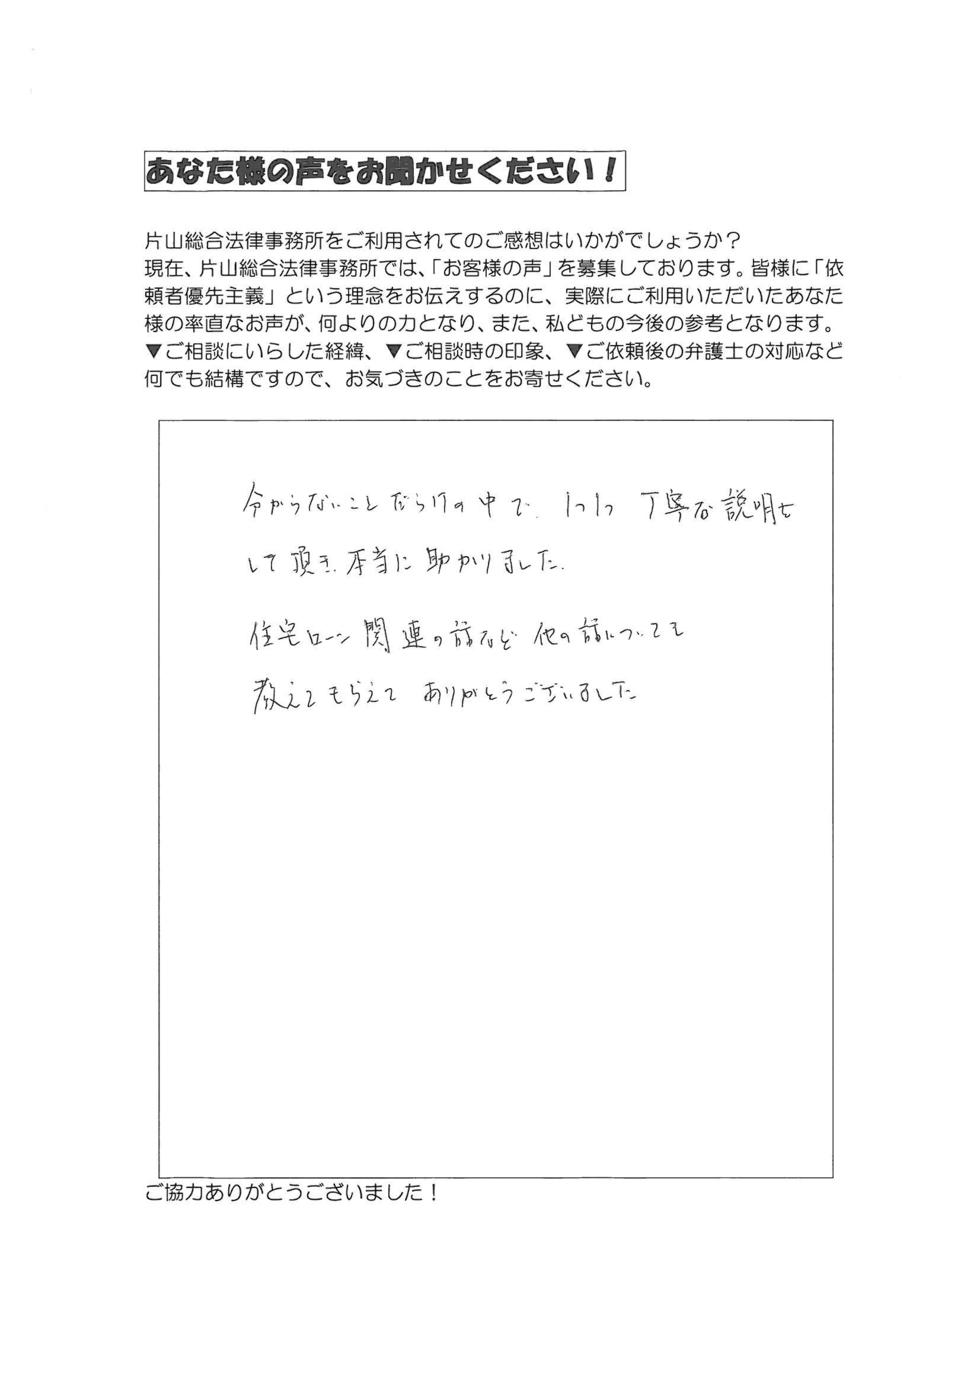 あなた様の声をお聞かせください！
片山総合法律事務所をご利用されてのご感想はいかがでしょうか？
現在、片山総合法律事務所では、「お客様の声」を募集しております。皆様に「依
頼者優先主義」という理念をお伝えするのに、実際にご利用いただいたあなた
様の率直なお声が、何よりの力となり、また、私どもの今後の参考となります。
▼ご相談にいらした経緯、▼ご相談時の印象、▼ご依頼後の弁護士の対応など
何でも結構ですので、お気づきのことをお寄せください。
分からないことだらけの中で、1つ1つ 丁寧な説明を
して頂き、本当に助かりました。
住宅ローン関連の話など 他の話についても
教えてもらえて ありがとうございました
ご協力ありがとうございました！